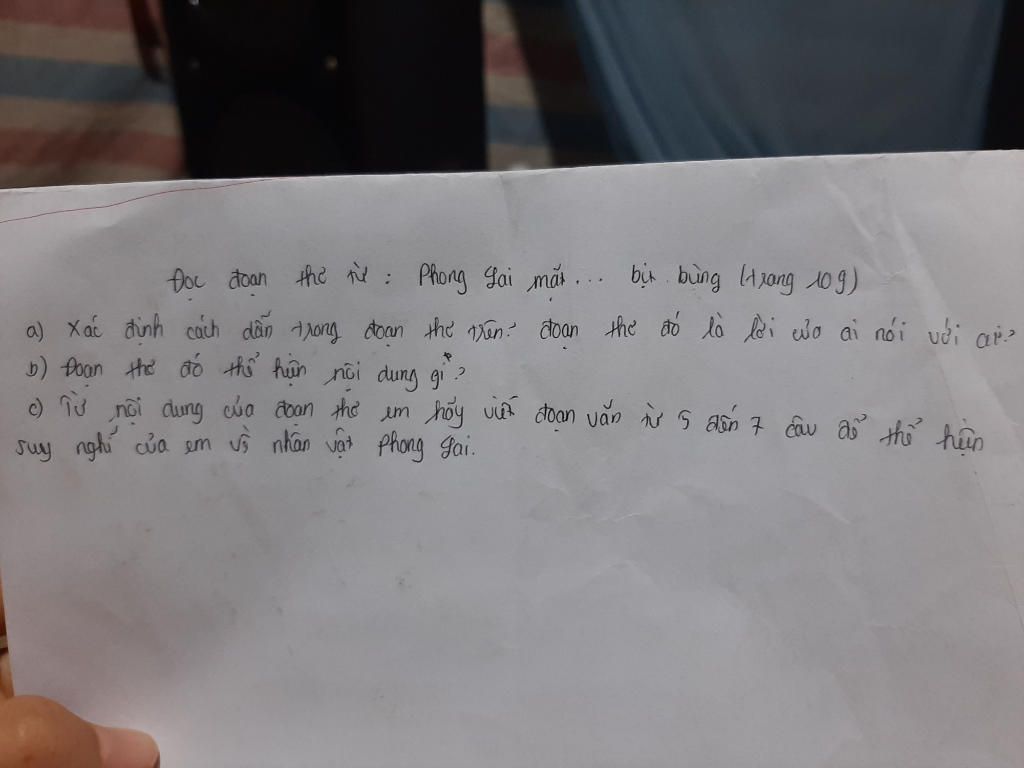 Đọc đoạn thơ từ : Phong Lai mặt... bịt bùng (trang 109)
a) Xác định cách dẫn trong đoạn thơ trên? đoạn thơ đó là lời của ai nói với ai?
b) Đoạn thơ đó thể hiện nội dung gì?
c) Từ nội dung của đoạn thơ em hãy viết đoạn văn từ 5 đến 7 câu để thể hiện
suy nghĩ của em về nhân vật Phong Lai.